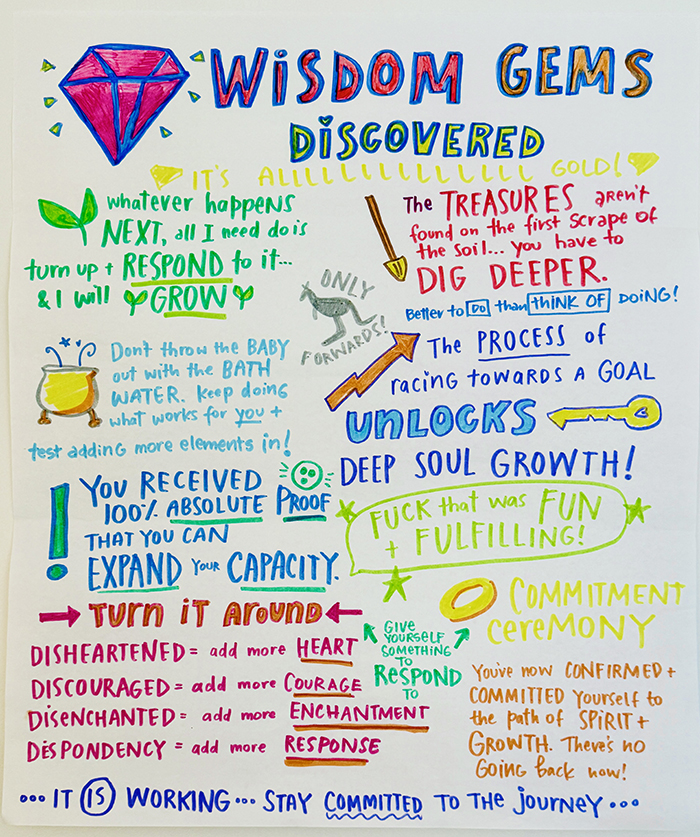 WISDOM GEMS
DISCOVERED
IT'S ALLLLLLLLLLLLLL GOLD!
whatever happens
NEXT, all I need do is
turn up + RESPOND to it...
& I will GROW
The TREASURES aren't
found on the first scrape of
the soil... you have to
DIG DEEPER.
ONLY
FORWARDS!
Better to DO than THINK OF DOING!
The PROCESS of
racing towards A GOAL
UNLOCKS
DEEP SOUL GROWTH!
Don't throw the BABY
out with the BATH
WATER. Keep doing
what works for you +
test adding more elements in!
! YOU RECEIVED
100% ABSOLUTE PROOF
THAT YOU CAN
EXPAND YOUR CAPACITY.
FUCK that was FUN
+ FULFILLING!
TURN IT AROUND
DISHEARTENED = add more HEART
DISCOURAGED = add more COURAGE
DISENCHANTED = add more ENCHANTMENT
DESPONDENCY = add more RESPONSE
GIVE
YOURSELF
SOMETHING
TO
RESPOND
TO
COMMITMENT
CEREMONY
You've now CONFIRMED +
COMMITTED yourself to
the path of SPIRIT +
GROWTH. There's no
GOING BACK now!
... IT IS WORKING... STAY COMMITTED TO THE JOURNEY...